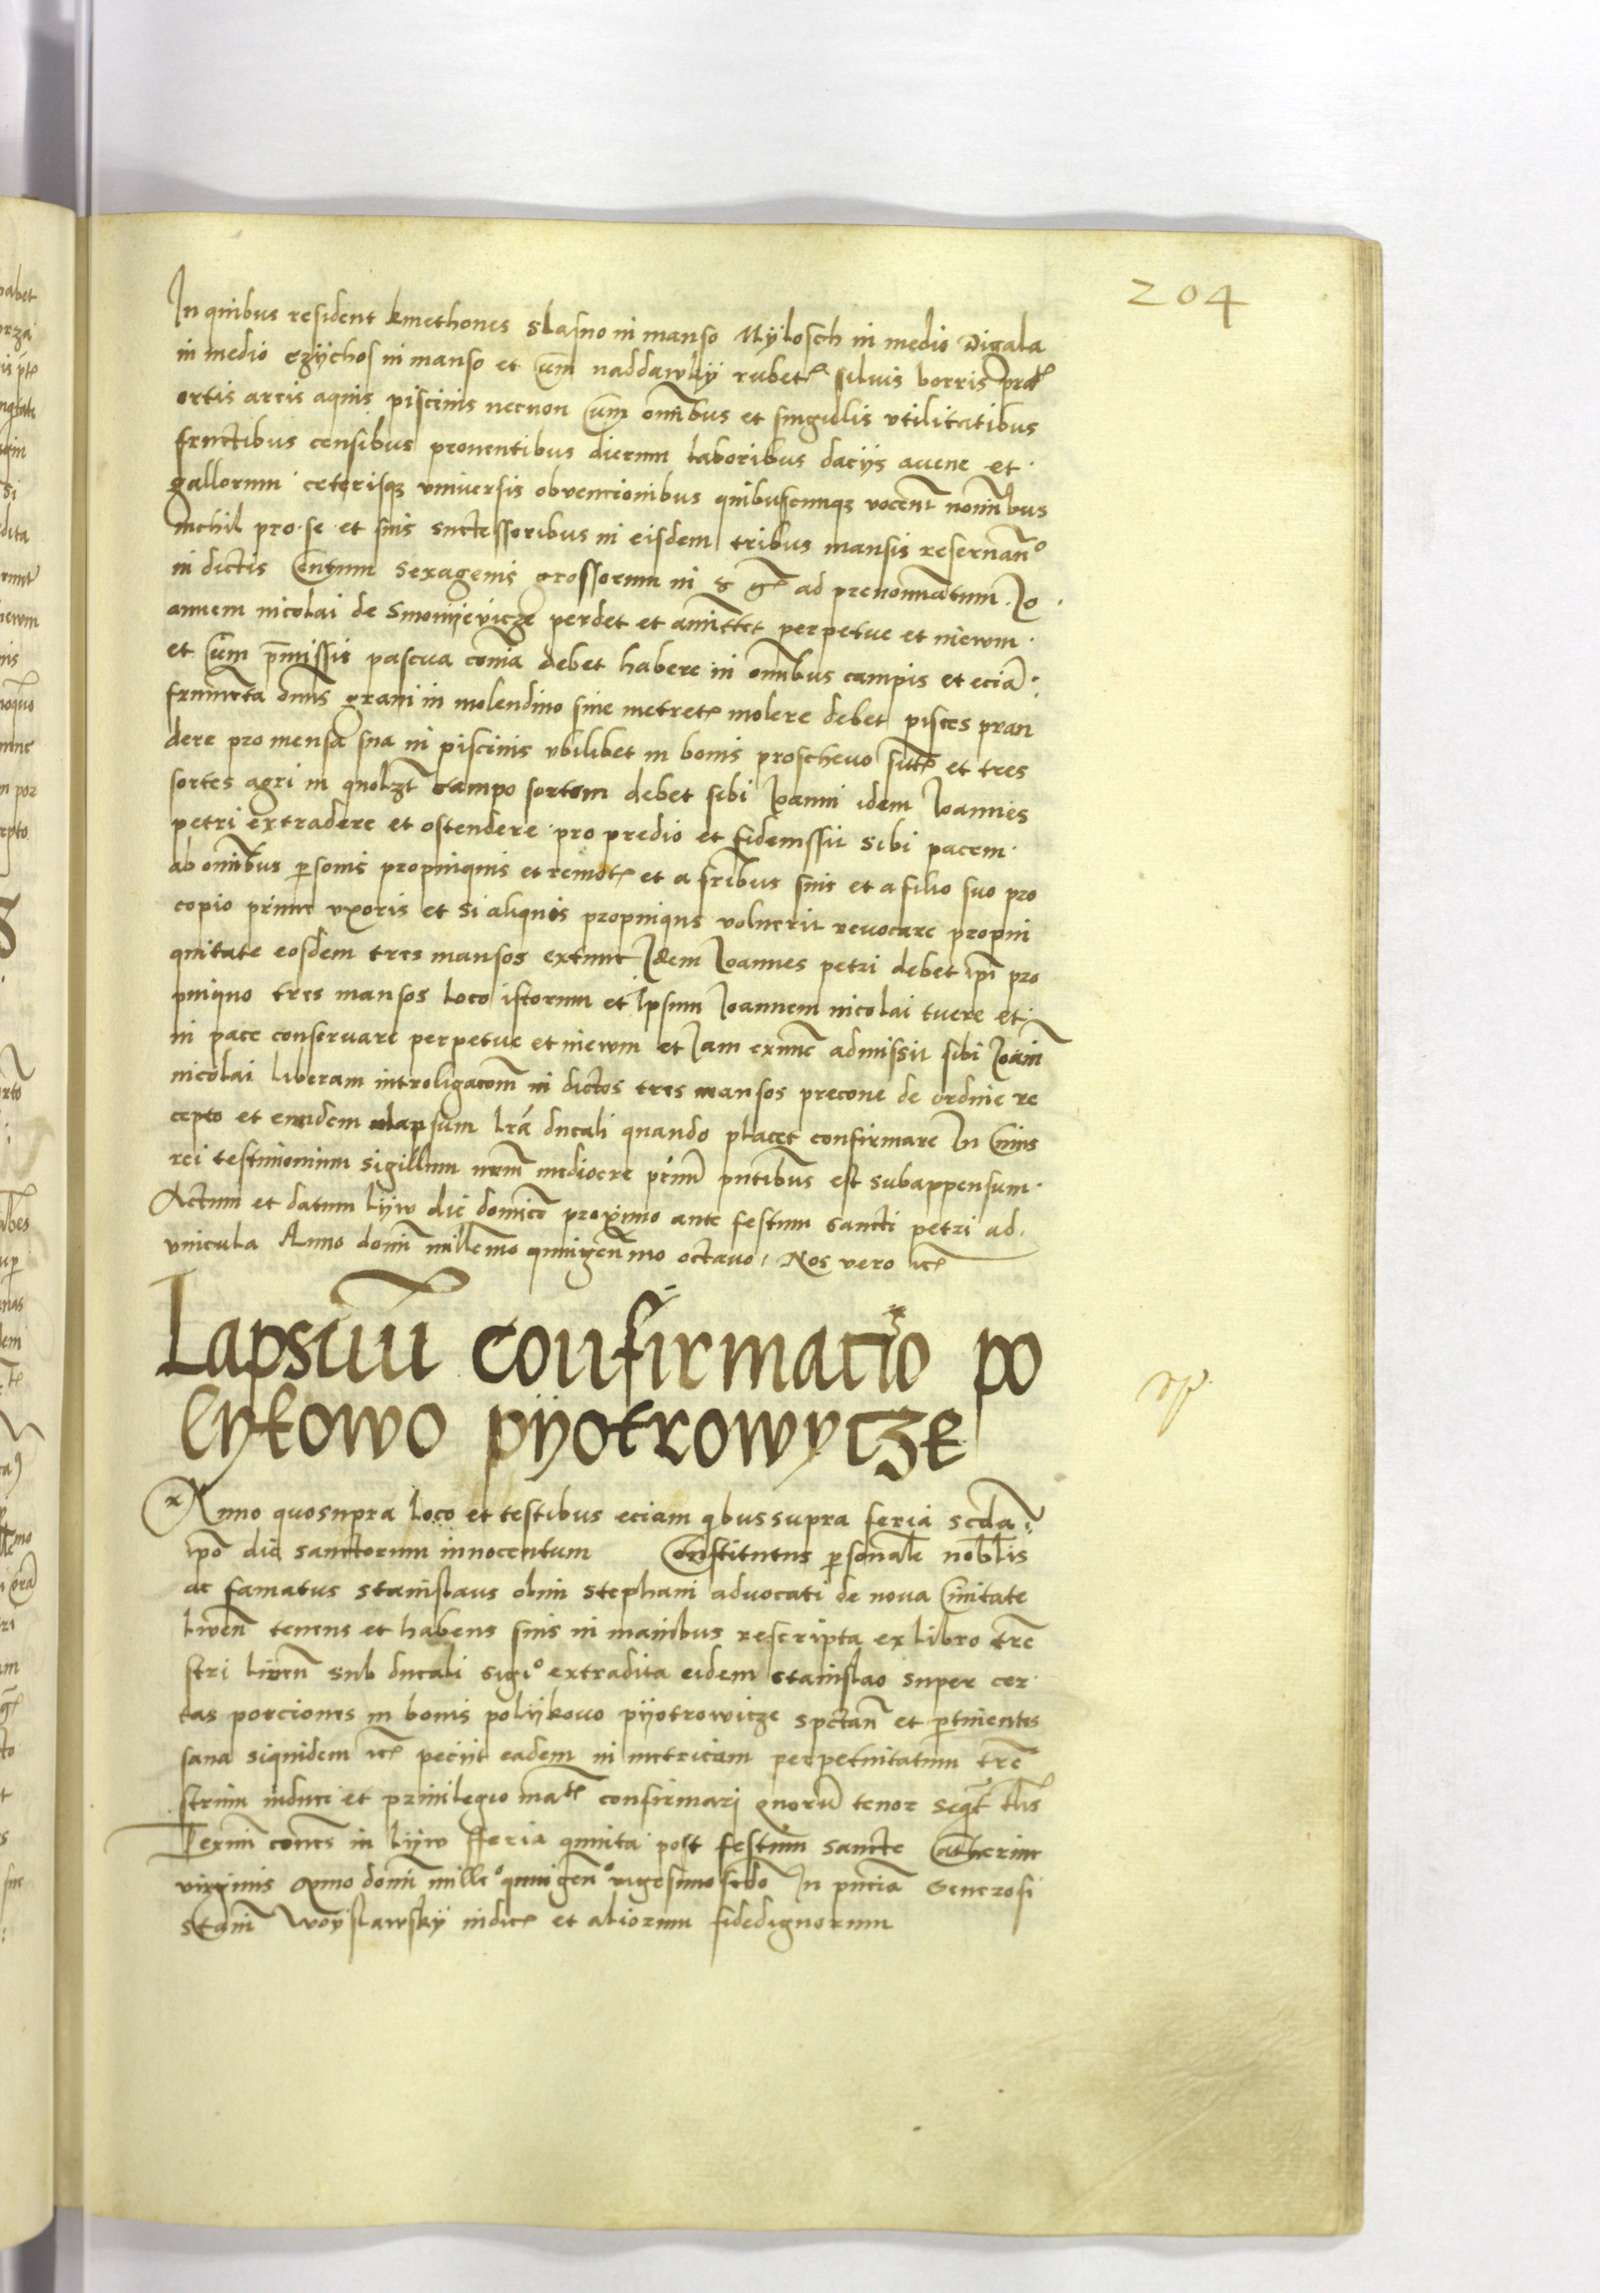 204
In quibus resident kmethones Slasno in manso Mylosch in medio Digala
in medio Czychos in manso et cum naddawky rubet silvis borris prat
ortis arcis aquis piscinis necnon Cum omnibus et singulis utilitatibus
fructibus censibus proventibus dierum laboribus daciis avene et
gallorum ceterisque universis obvencionibus quibuscunque vocent nominibus
nichil pro se et suis successoribus in eisdem tribus mansis reservando
in dictis Centum sexagenis grossorum in ad prenominatum Io
annem nicolai de Smonijevicze perdet et amittet perpetue et in ewm
et Cum premissis pascua omnia debet habere in omnibus campis et eciam
frumenta omnis grani in molendino sine metret molere debet pisces pran
dere pro mensa sua in piscinis ubilibet in bonis proschevo et tres
sortes agri in quolzt campo sortem debet sibi Joanni idem Joannes
petri extradere et ostendere pro predio et fideiussit sibi pacem
ab omnibus personis propinquis et remot et a fribus suis et a filio suo pro
copio prime uxoris et si aliquis propinquus voluerit revocare propin
quitate eosdem tres mansos extunc Idem Joannes petri debet ipi pro
pinquo tres mansos loco istorum et Ipsum Joannem nicolai tuere et
in pace conservare perpetue et in ewm et Jam exnunc admissit sibi Joani
nicolai liberam introligacom in dictos tres mansos precone de ordine re
cepto et eundem lapsum lra ducali quando placet confirmare In Cuius
rei testimonium sigillum nrm mediocre pntibus est subappensum
Actum et datum lyw die dominico proximo ante festum sancti petri ad
vincula Anno domi millemo quingenmo octavo Nos vero etc
Lapsuum confirmatio po
lykowo pyotrowycze
Anno quosupra loco et testibus eciam qbussupra feria scda
ipo die sanctorum innocentum Constitutus personale nobilis
ac famatus stanislaus olim stephani advocati de nova Civitate
liven tenens et habens suis in manibus rescripta ex libro tre
stri liven sub ducali sigo extradita eidem stanislao super cer
tas porciones in bonis polykovo pyotrowicze spectan et ptinentes
sana siquidem etc peciit eadem in metricam perpetuitatum tre
strium induci et privilegio confirmari quoru tenor sequit
Termi in lyw fferia quinta post festum sancte Catherine
virginis Anno domi millo quingeno vigesimo scdo In pncia Generosi
Stani Woyslawsky iudic et aliorum fidedignorum